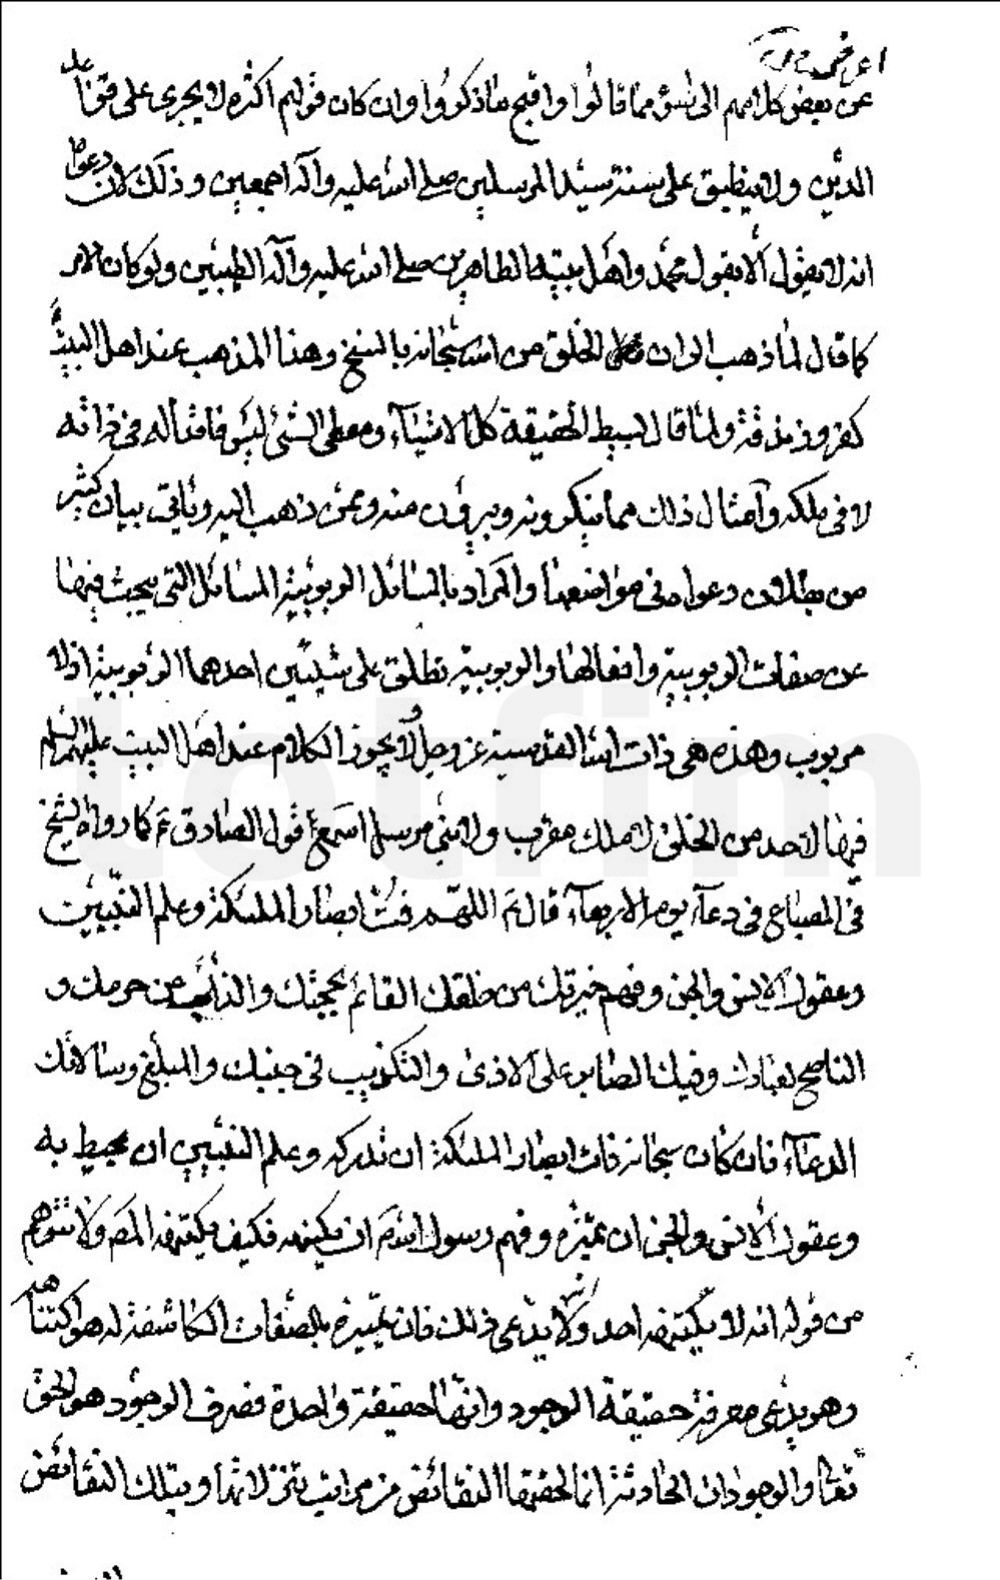 عن بعض كلامهم الى اسوء مما قالوا واقبح مما ذكروا وان كان قولهم اكثره لا يجرى على قواعد
الدين ولا ينطبق على سنة سيد المرسلين صلى الله عليه وآله اجمعين وذلك لان دعواه
انه لا يقول الا بقول محمد واهل بيته الطاهرين صلى الله عليه وآله الطيبين ولو كان الامر
كما قال لما ذهب الى ان الخلق من سبحانه بالسنخ وهذا المذهب عند اهل البيت
كفر وزندقة ولما قال بسيط الحقيقة كل الاشياء ومعطى الشئ ليس فاقدا له فى ذاته
لا فى ملكه وامثال ذلك مما ينكرونه ويبرؤن منه وممن ذهب اليه وياتى بيان كثير
من بطلان دعواه فى مواضعها والمراد بالمسائل الربوبية المسائل التى يبحث فيها
عن صفات الربوبية وافعالها والربوبية تطلق على شيئين احدهما الربوبية اذ لا
مربوب وهذه هى ذات الله القدسية عز وجل ولا يجوز الكلام عند اهل البيت عليهم السلام
فيها لاحد من الخلق لا ملك مقرب ولا نبى مرسل اسمع قول الصادق ع كما رواه الشيخ
فى المصباح فى دعاء يوم الاربعاء قال ع اللهم فت ابصار الملئكة وعلم النبيين
وعقول الانس والجن وفهم خيرتك من خلقك القائم بحجتك والذاب عن حرمك و
الناصح لعبادك وفيك الصابر على الاذى والتكذيب فى جنبك والمبلغ رسالاتك
الدعاء فان كان سبحانه فات ابصار الملئكة ان تدركه وعلم النبيين ان يحيط به
وعقول الانس والجن ان تميزه وفهم رسول الله ص ان يكتنهه فكيف يكتنهه المص ولا تتوهم
من قوله انه لا يكتنهه احد ولا يدعى ذلك فان تمييزه بالصفات الكاشفة له هو اكتناهه
وهو يدعى معرفة حقيقة الوجود وانها حقيقة واحدة فصرف الوجود هو الحق
تعالى والوجودات الحادثة انما لحقتها النقائص من مراتب تنزلاتها وبتلك النقائص
totfim